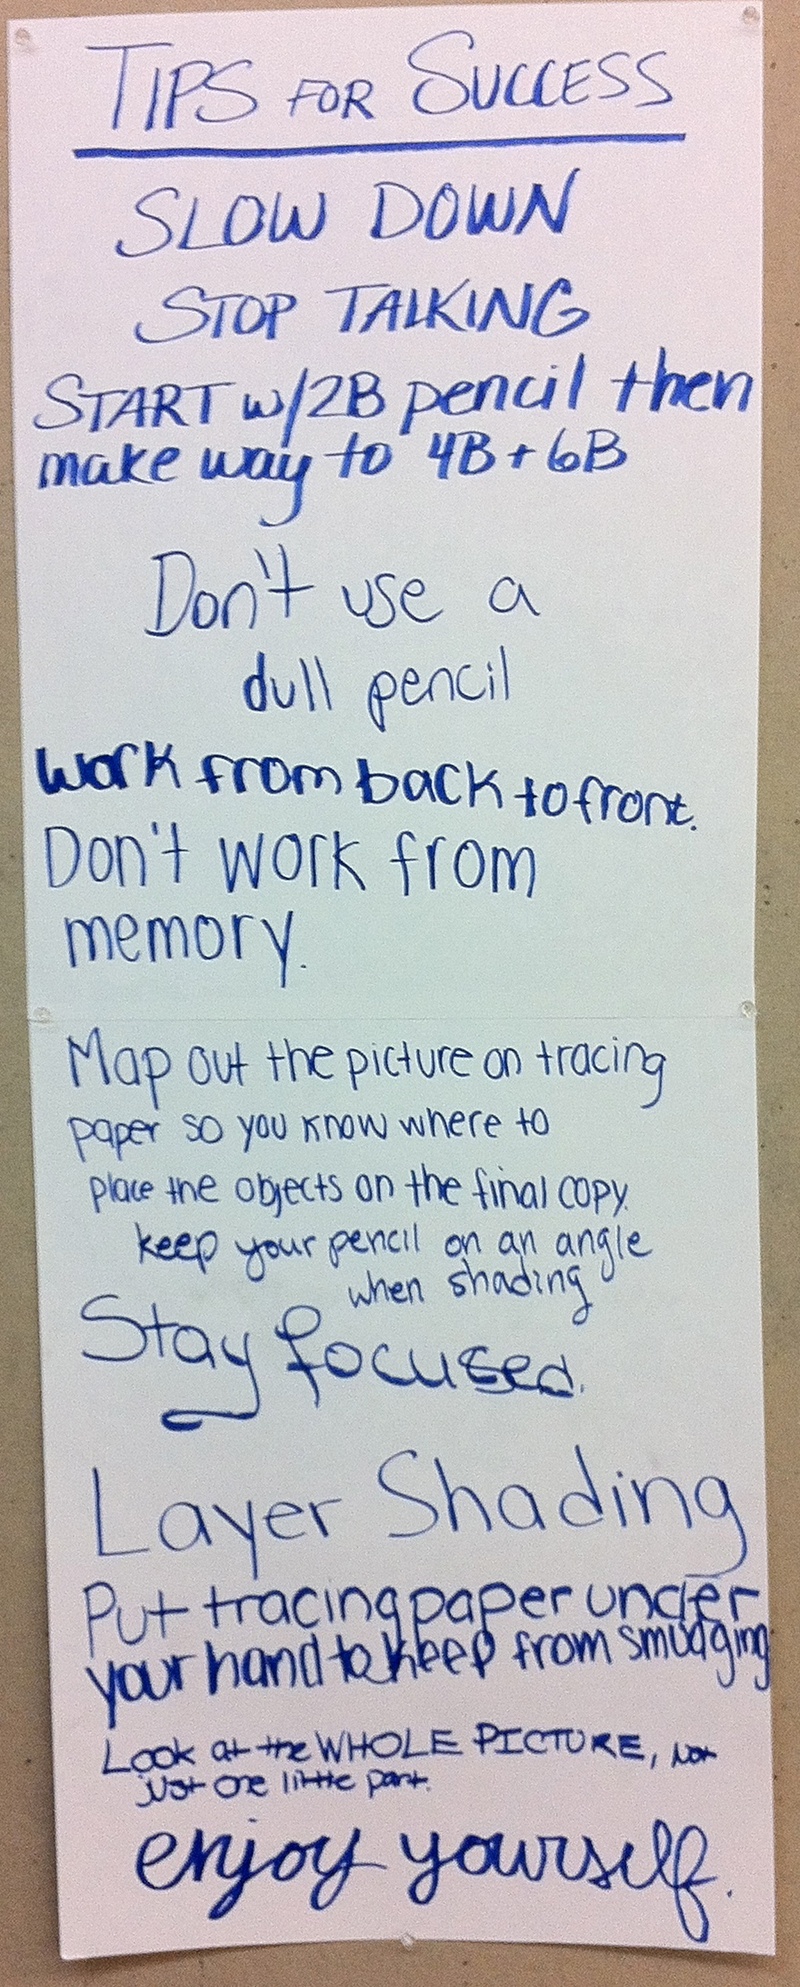 TIPS FOR SUCCESS
SLOW DOWN
STOP TALKING
START w/2B pencil then
make way to 4B + 6B
Don't use a
dull pencil
work from back to front.
Don't work from
memory.
Map out the picture on tracing
paper so you know where to
place the objects on the final copy.
keep your pencil on an angle
when shading
Stay focused.
Layer Shading
Put tracing paper under
your hand to keep from smudging
Look at the WHOLE PICTURE, not
just one little part.
enjoy yourself.